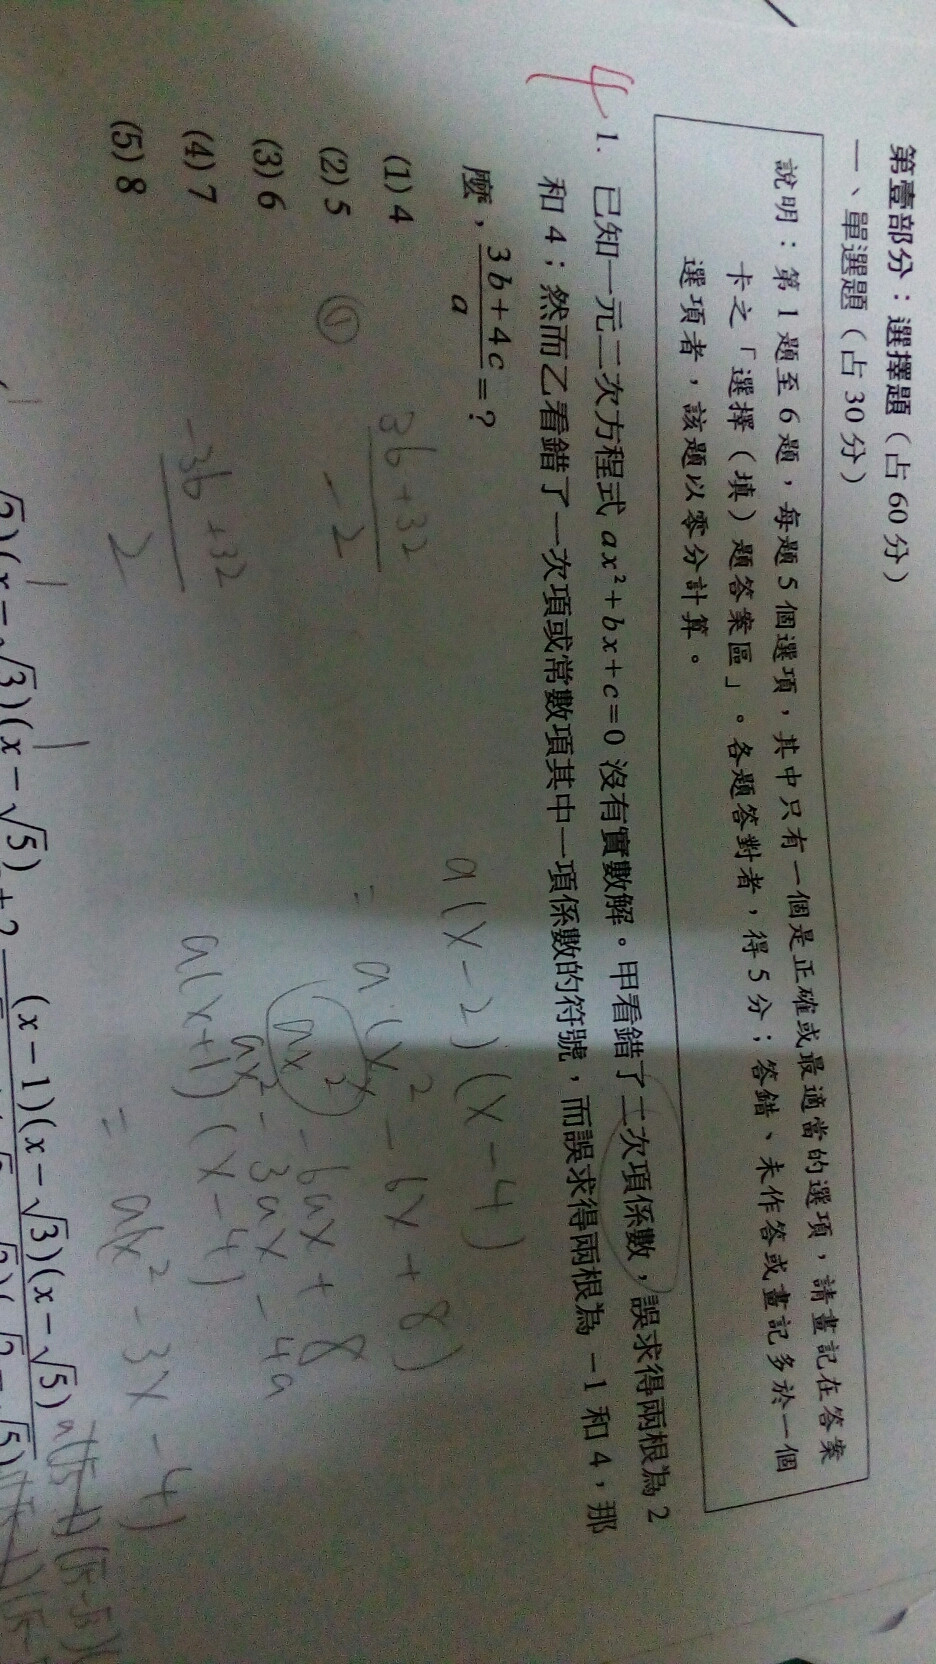 第壹部分：選擇題（占 60 分）
一、單選題（占 30 分）
說明：第 1 題至 6 題，每題 5 個選項，其中只有一個是正確或最適當的選項，請畫記在答案
卡之「選擇（填）題答案區」。各題答對者，得 5 分；答錯、未作答或畫記多於一個
選項者，該題以零分計算。
4
1. 已知一元二次方程式 ax²+bx+c=0 沒有實數解。甲看錯了二次項係數，誤求得兩根為 2
和 4；然而乙看錯了一次項或常數項其中一項係數的符號，而誤求得兩根為 -1 和 4，那
麼，(3b+4c)/a=？
(1) 4
(2) 5
(3) 6
(4) 7
(5) 8
①
(3b+32)/-2
(-3b+32)/2
a(x-2)(x-4)
= a(x²-6x+8)
ax²-6ax+8
ax²-3ax-4a
a(x+1)(x-4)
= a(x²-3x-4)
(x-1)(x-√3)(x-√5)